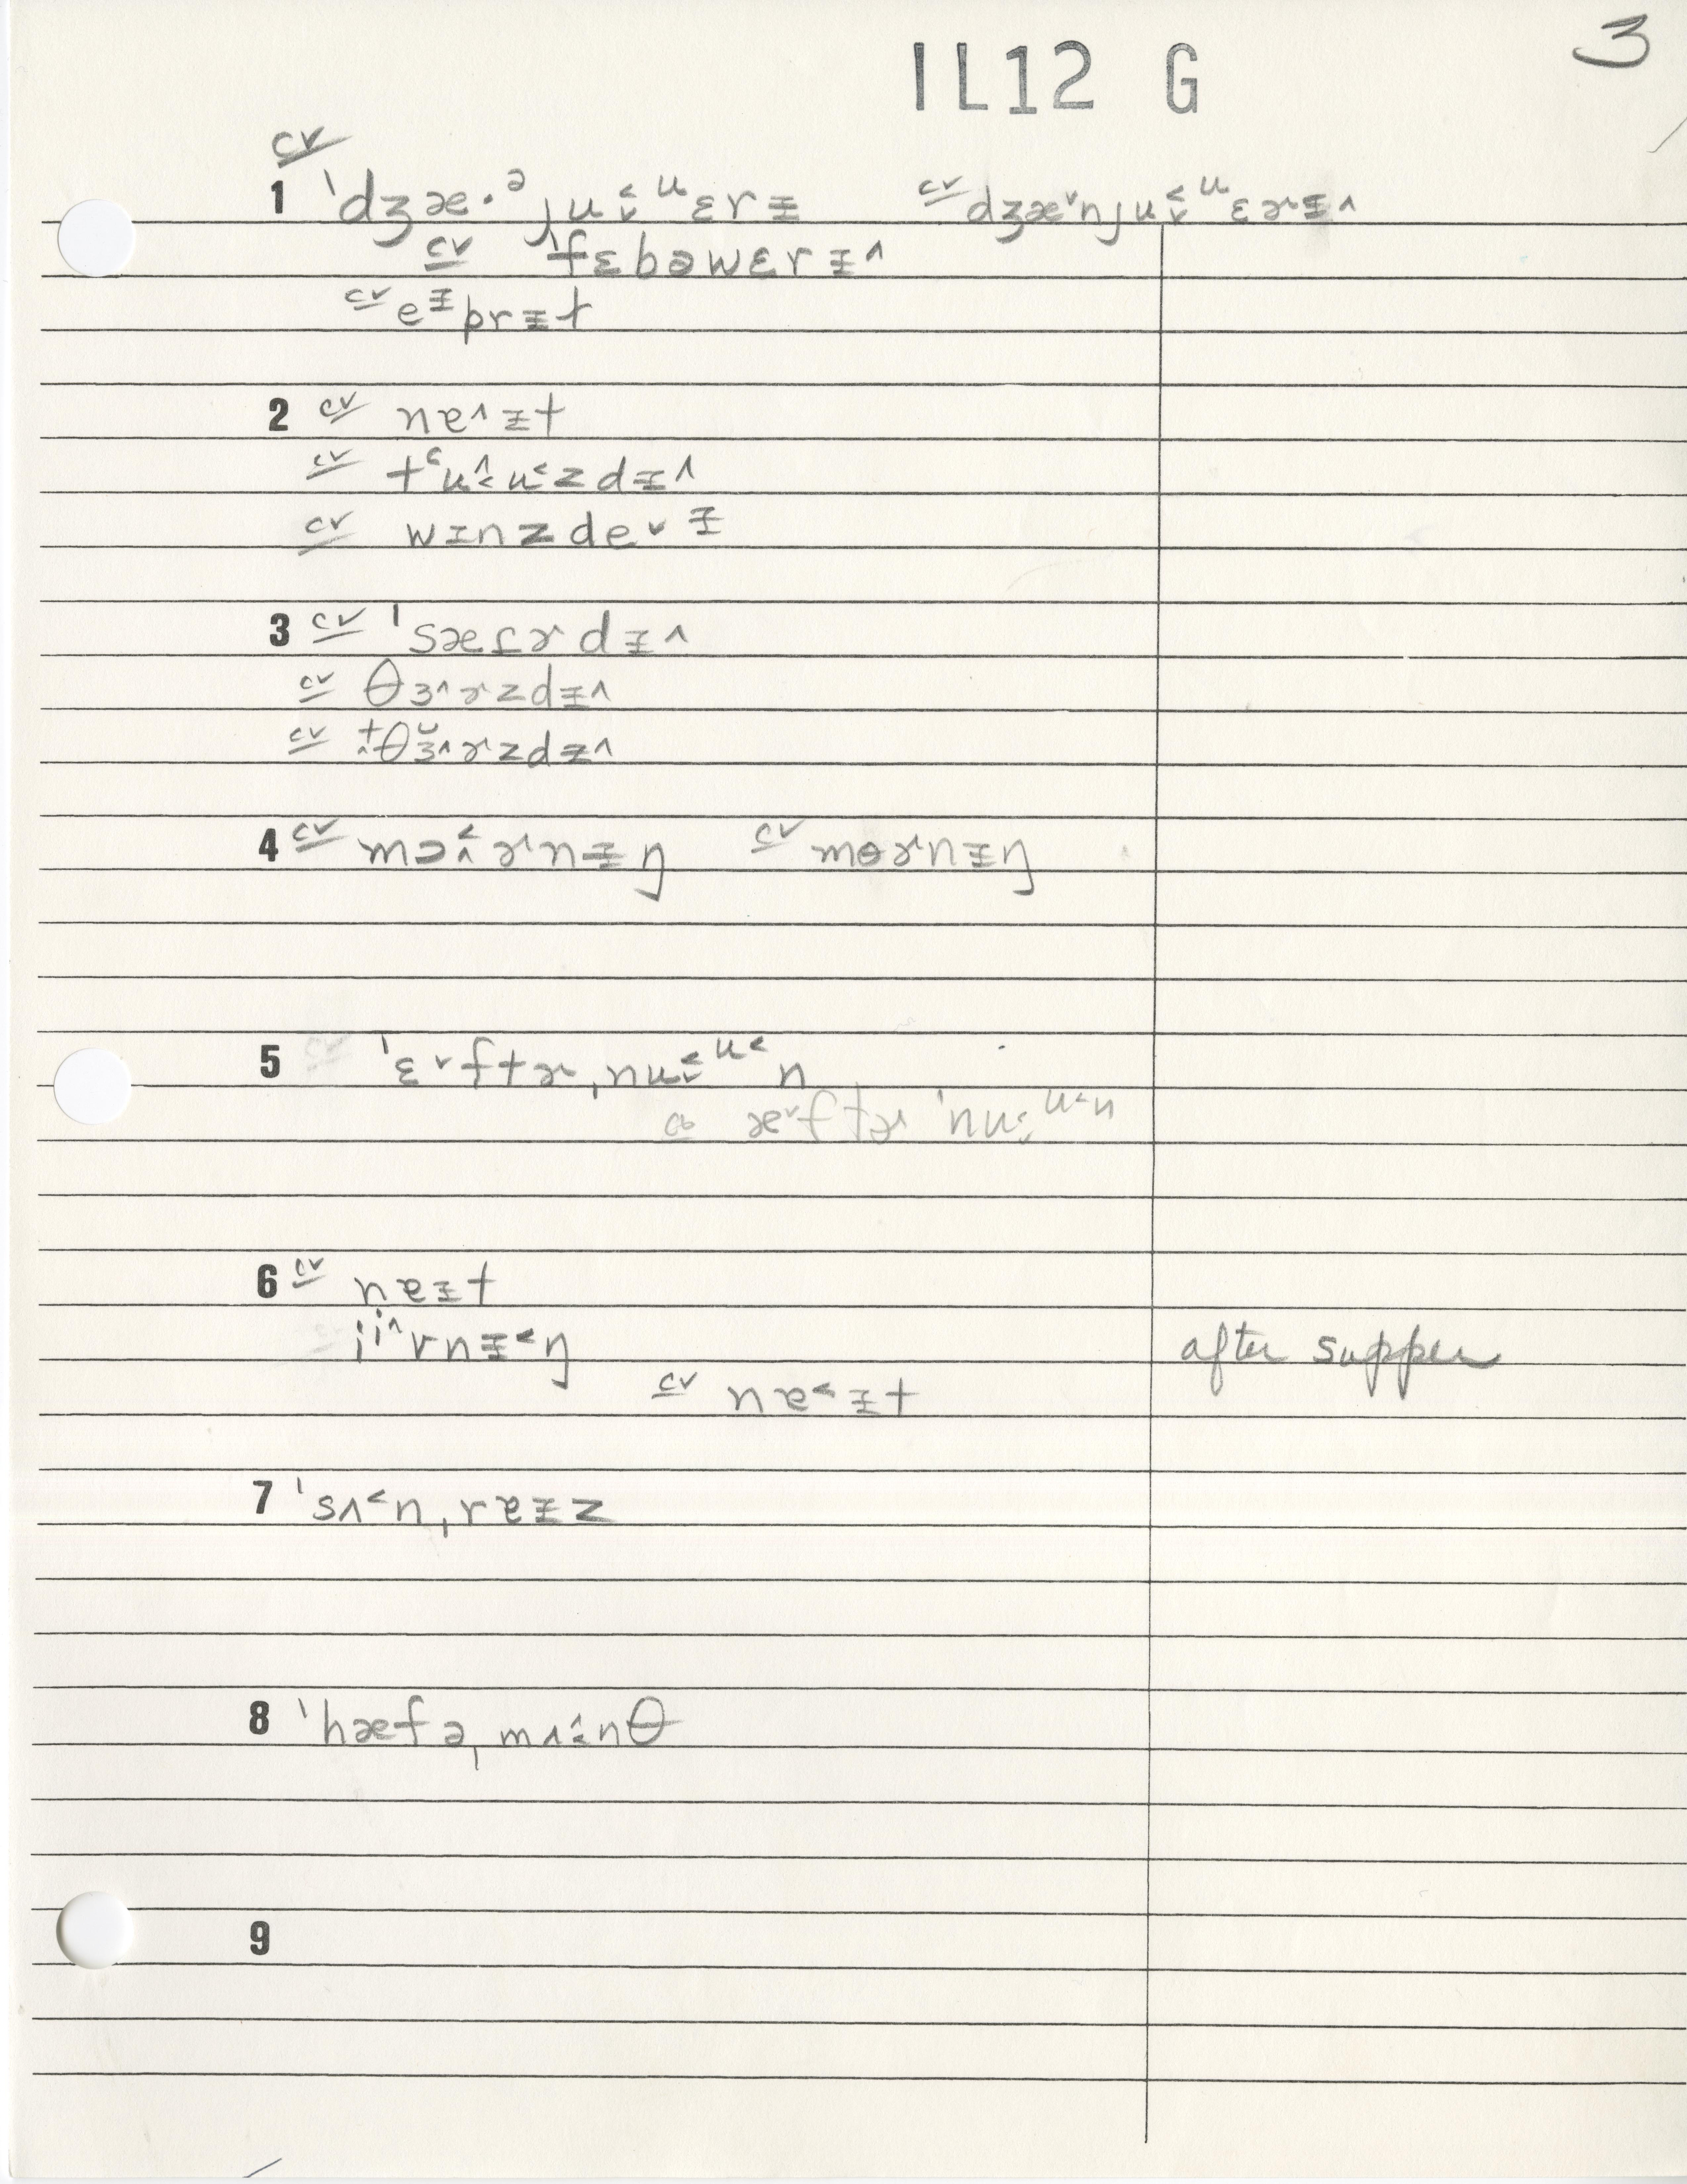 IL12 G
3
cv
1 ˈdʒæ·ᵊjuᵾ˂˅ᵘɛrɪ cv dʒæ˅njuᵾ˂˅ᵘɛɚɪ^
cv ˈfɛbəwɛrɪ^
cv eᶦprɪt
2 cv naɪ^t
cv tᶜu˂^u˂zdɪ^
cv wɪnzde˅ɪ
3 cv ˈsæɾɚdɪ^
cv θɜ^ɚzdɪ^
cv t̪θɜ^ɚzdɪ^
4 cv mɔ˂^ɚnɪŋ cv mɵɚnɪŋ
5 ˈɛ˅ftɚˌnu˂˅ᵘ˂n
æ˅ftɚˈnu˂˅ᵘ˂n
6 cv naɪt
iⁱ^vnɪ˂ŋ after supper
cv na˂ɪt
7 ˈsʌ˂nˌraɪz
8 ˈhæfəˌmʌ˂^nθ
9